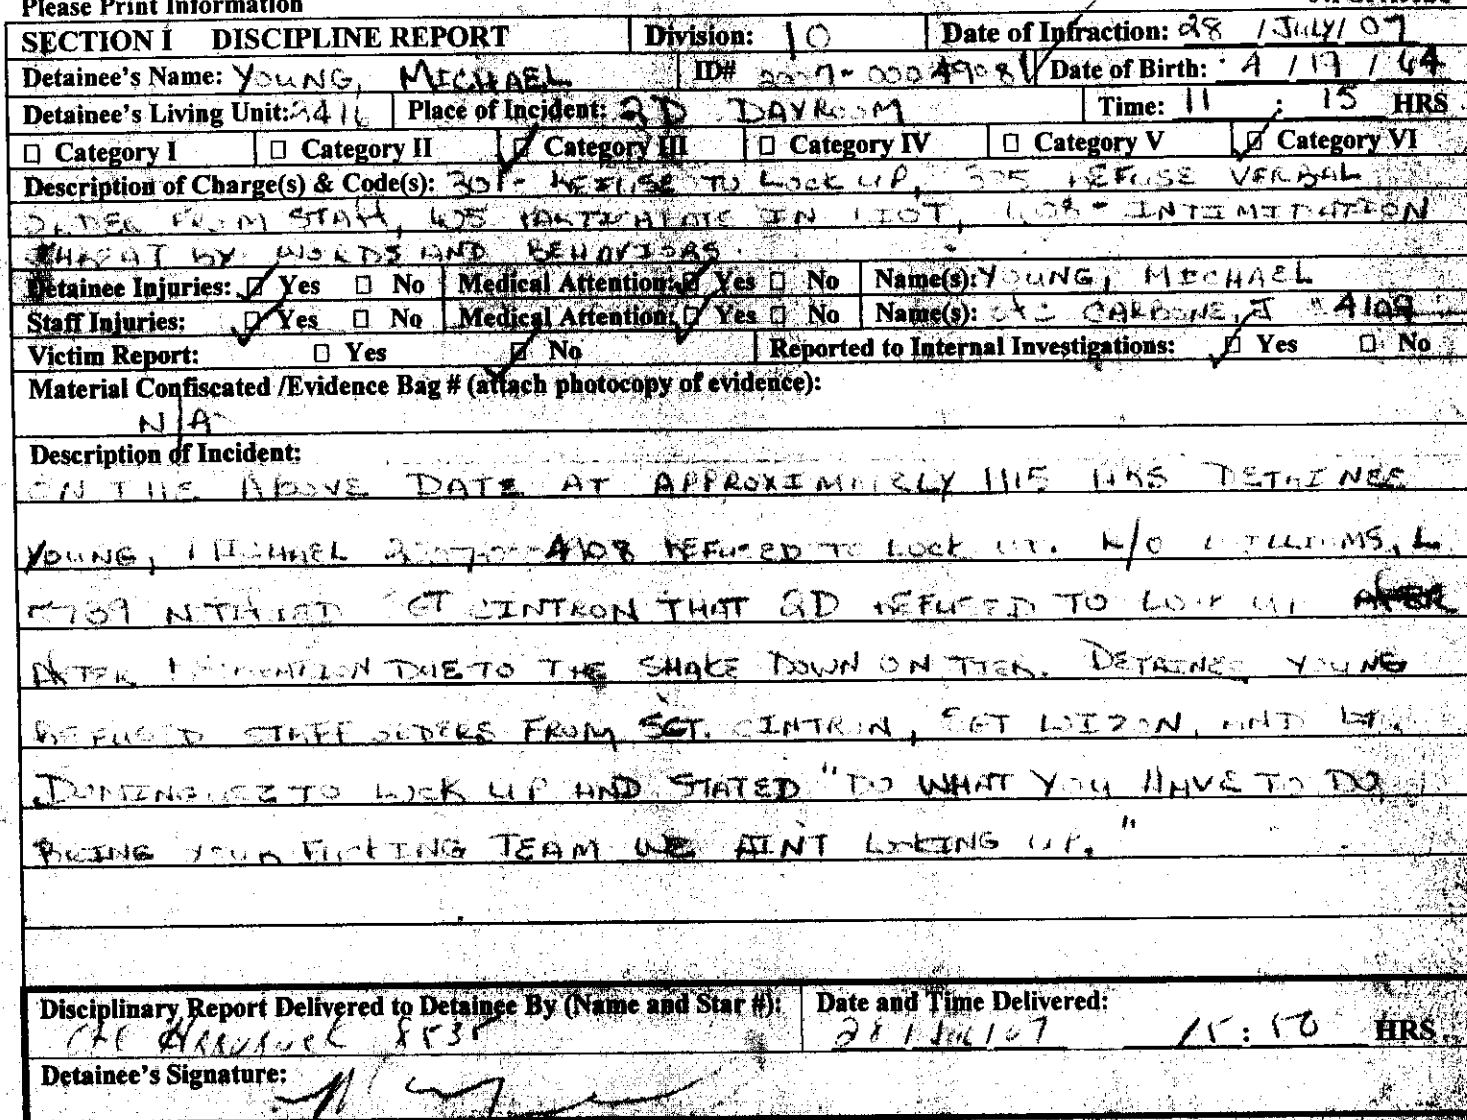 Please Print Information
SECTION I DISCIPLINE REPORT Division: 10 Date of Infraction: 28 / July / 07
Detainee's Name: YOUNG, MICHAEL ID# Date of Birth: 4 / 19 / 64
Detainee's Living Unit: Place of Incident: 2D DAYROOM Time: 11 : 15 HRS
☐ Category I ☐ Category II ☑ Category III ☐ Category IV ☐ Category V ☑ Category VI
Description of Charge(s) & Code(s): 301- REFUSE TO LOCK UP, REFUSE VERBAL
ORDER FROM STAFF, PARTICIPATE IN RIOT, INTIMIDATION
THREAT BY WORDS AND BEHAVIORS.
Detainee Injuries: ☑ Yes ☐ No Medical Attention: ☑ Yes ☐ No Name(s): YOUNG, MICHAEL
Staff Injuries: ☑ Yes ☐ No Medical Attention: ☑ Yes ☐ No Name(s): CARBONE, J 4109
Victim Report: ☐ Yes ☑ No Reported to Internal Investigations: ☑ Yes ☐ No
Material Confiscated /Evidence Bag # (attach photocopy of evidence):
N/A
Description of Incident:
ON THE ABOVE DATE AT APPROXIMATELY 1115 HRS DETAINEE
YOUNG, MICHAEL REFUSED TO LOCK UP. WILLIAMS, L
SGT CINTRON THAT 2D REFUSED TO LOCK UP
AFTER DUE TO THE SHAKE DOWN ON TIER. DETAINEE YOUNG
REFUSED STAFF ORDERS FROM SGT. CINTRON, SGT AND LT.
DOMINGUEZ TO LOCK UP AND STATED "DO WHAT YOU HAVE TO DO
BRING YOUR FUCKING TEAM WE AINT LOCKING UP."
Disciplinary Report Delivered to Detainee By (Name and Star #): Date and Time Delivered:
28 / Jul / 07 15:50 HRS
Detainee's Signature: